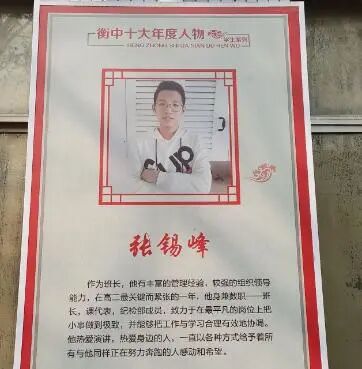 衡中十大年度人物
学生系列
张锡峰
作为班长，他有丰富的管理经验、较强的组织领导
能力，在高二最关键而紧张的一年，他身兼数职——班
长，课代表，纪检部成员，致力于在最平凡的岗位上把
小事做到极致，并能够把工作与学习合理有效地协调。
他热爱演讲，热爱身边的人，一直以各种方式给予着所
有与他同样正在努力奔跑的人感动和希望。